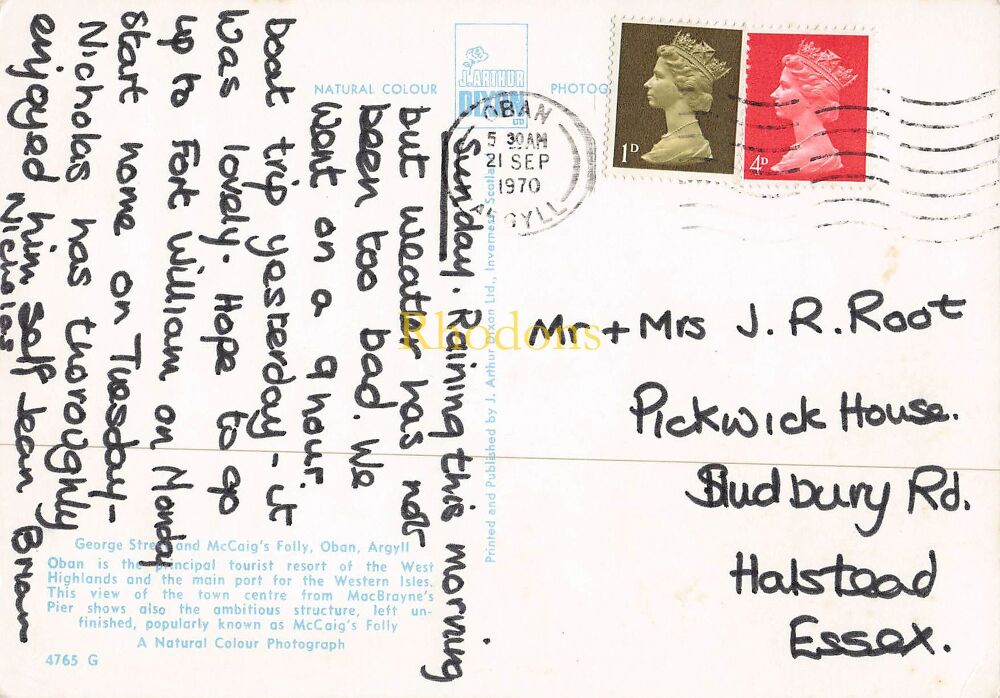 Sunday. Raining this morning
but weather has not
been too bad. We
want on a 9 hour
boat trip yesterday - it
was lovely. Hope to go
up to Fort William on Monday
start home on Tuesday -
Nicholas has thoroughly
enjoyed him self Jean Brian
Nicholas
Mr + Mrs J. R. Root
Pickwick House.
Sudbury Rd.
Halstead
Essex.
NATURAL COLOUR
J. ARTHUR
DIXON
LTD
PHOTOG
OBAN
5 30AM
21 SEP
1970
ARGYLL
1D
4D
Printed and Published by J. Arthur Dixon Ltd., Inverness Scotland
Rhodons
George Street and McCaig's Folly, Oban, Argyll
Oban is the principal tourist resort of the West
Highlands and the main port for the Western Isles.
This view of the town centre from MacBrayne's
Pier shows also the ambitious structure, left un-
finished, popularly known as McCaig's Folly
A Natural Colour Photograph
4765 G